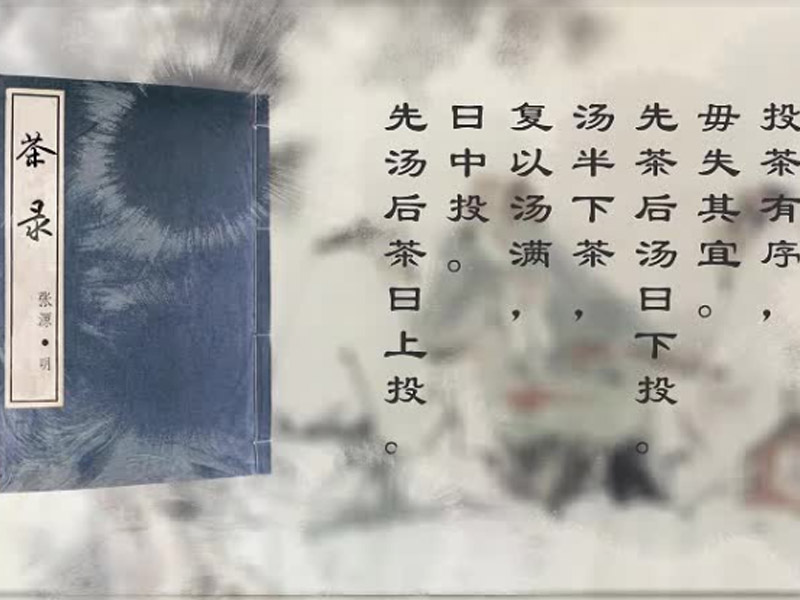 投茶有序，
毋失其宜。
先茶后汤曰下投。
汤半下茶，
复以汤满，
曰中投。
先汤后茶曰上投。
茶录
张源•明